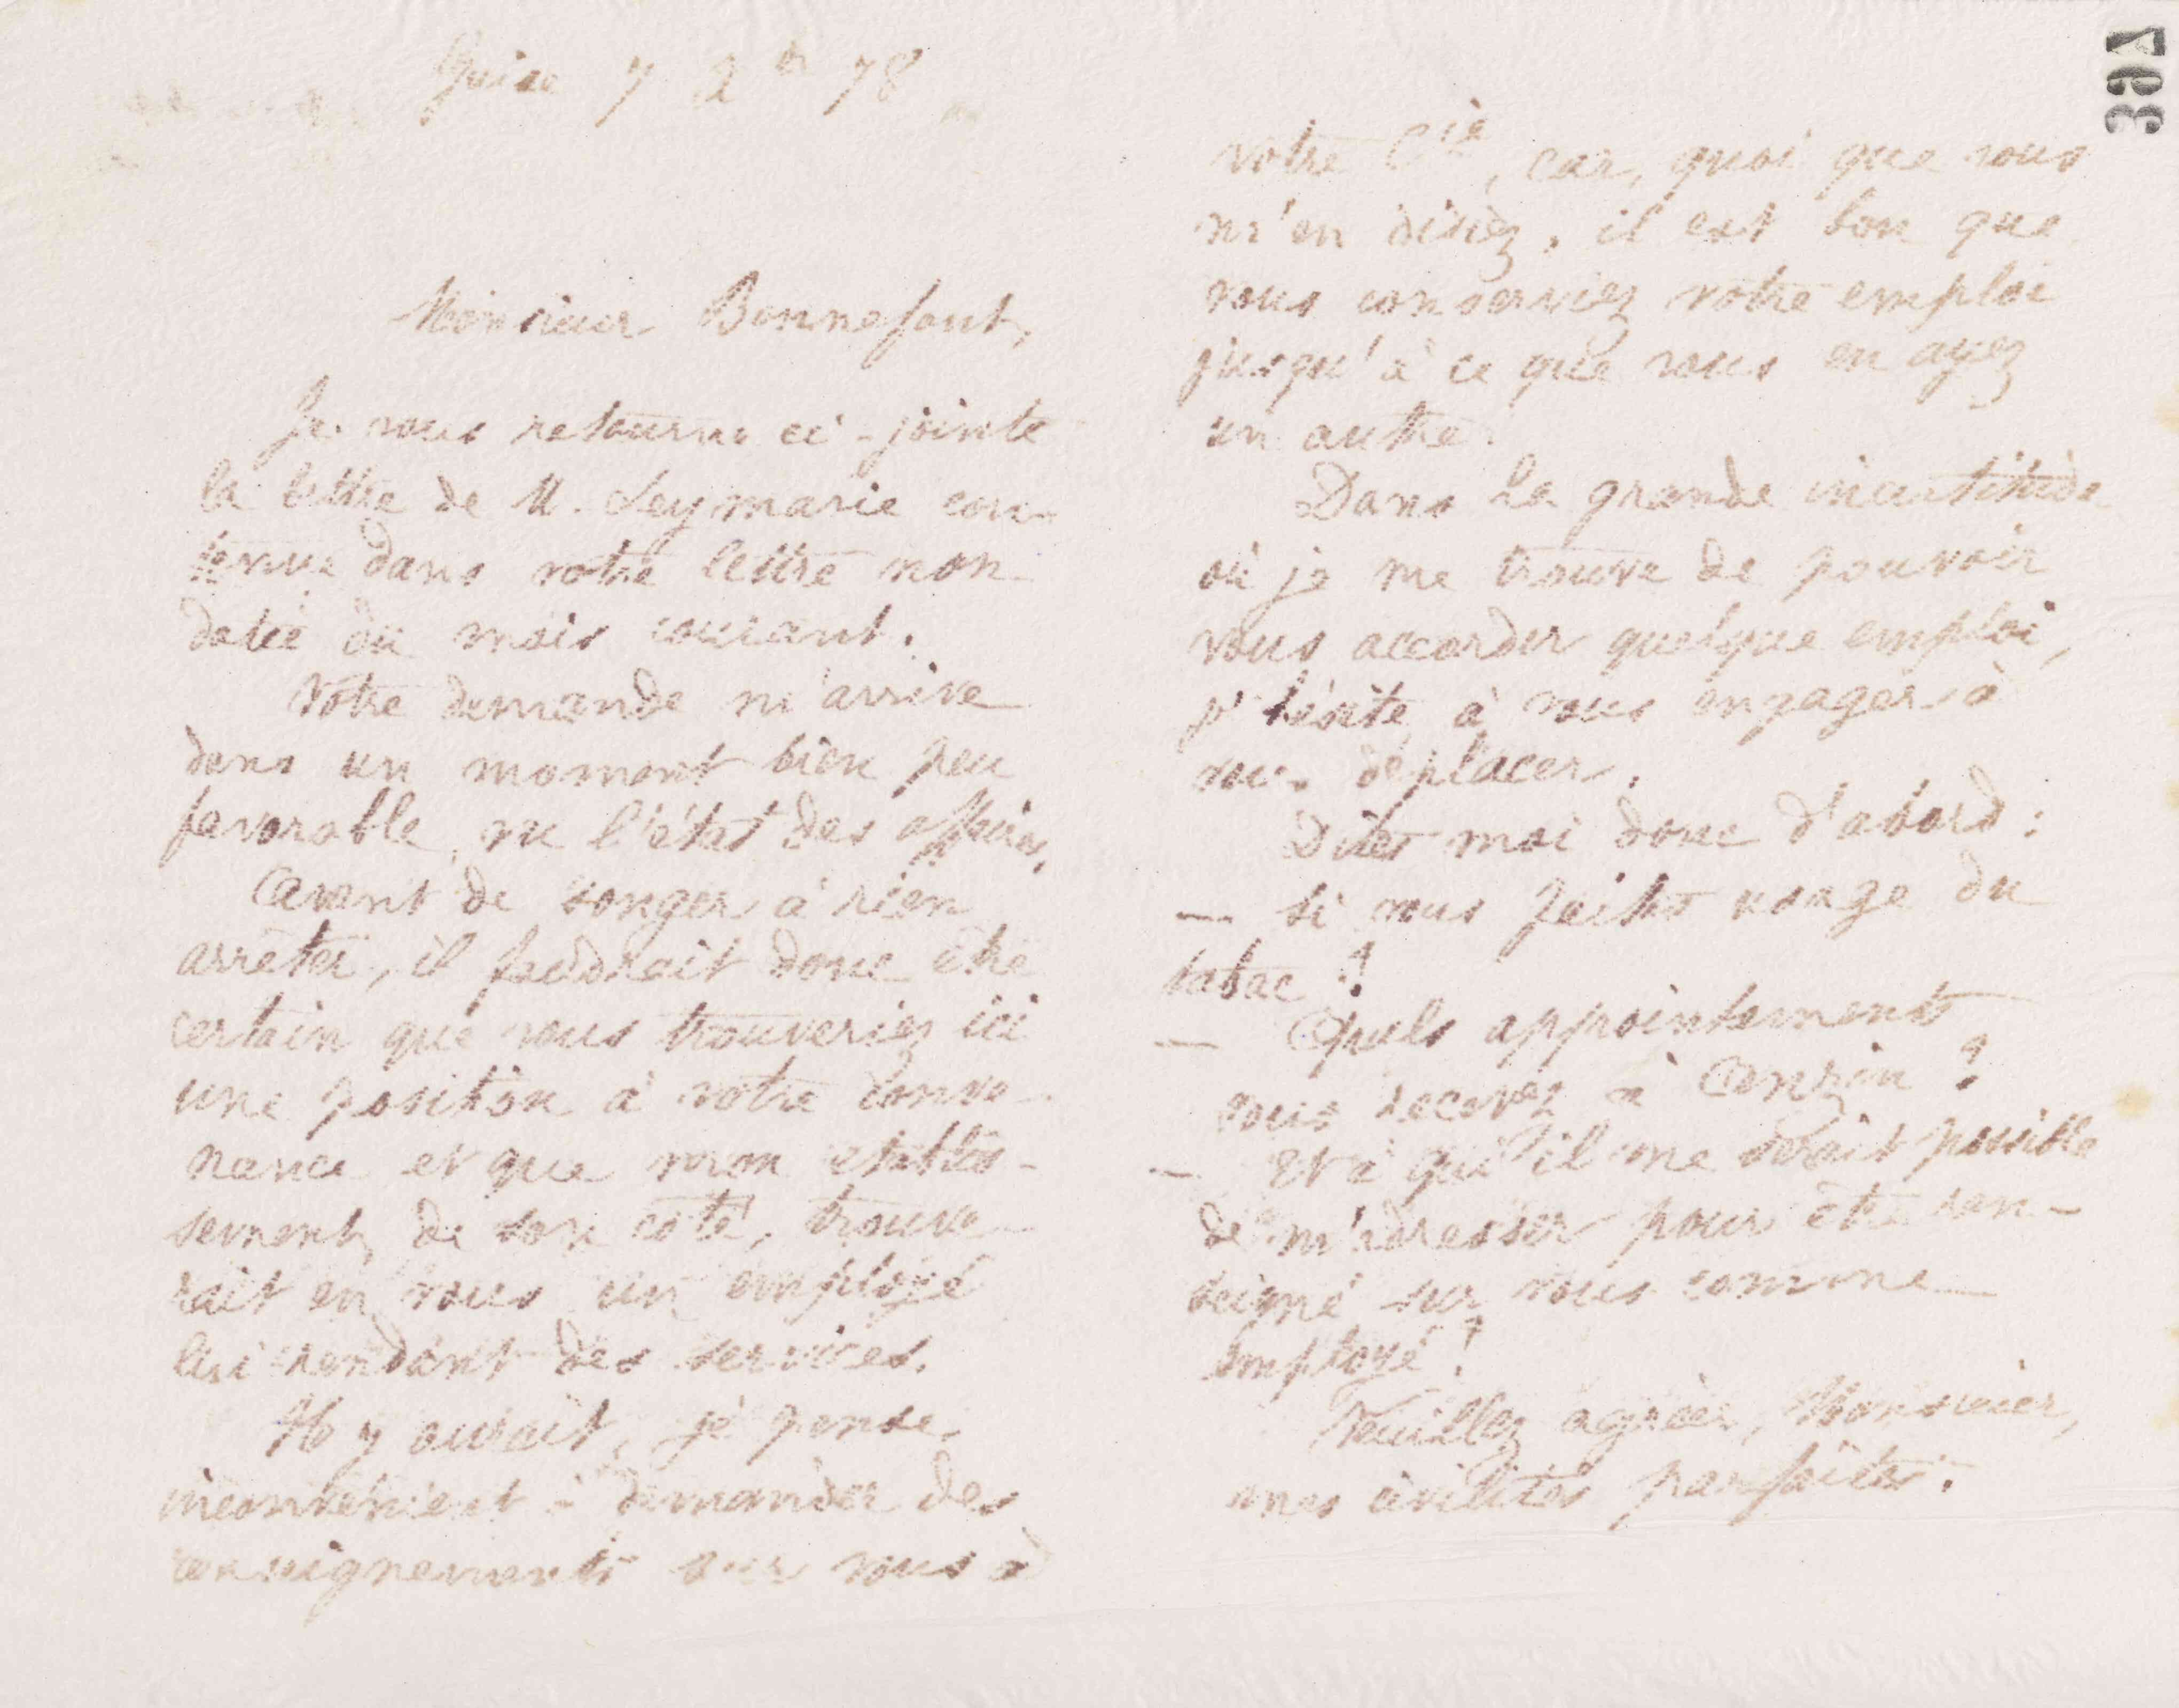 Guise 7 2bre 78
Monsieur Bonnefont,
Je vous retourne ci-jointe
la lettre de M. Leymarie con-
tenue dans votre lettre non
datée du mois courant.
Votre demande m'arrive
dans un moment bien peu
favorable, vu l'état des affaires.
Avant de songer à rien
arrêter, il faudrait donc être
certain que vous trouveriez ici
une position à votre conve-
nance et que mon établis-
sement, de son côté, trouve-
rait en vous un employé
lui rendant des services.
Il y aurait, je pense,
inconvénient à demander des
renseignements sur vous à
votre Cie, car, quoi que vous
m'en disiez, il est bon que
vous conserviez votre emploi
jusqu'à ce que vous en ayez
un autre.
Dans la grande incertitude
où je me trouve de pouvoir
vous accorder quelque emploi,
j'hésite à vous engager à
vous déplacer.
Dites moi donc d'abord :
— si vous faites usage du
tabac ?
— Quels appointements
vous recevez à Anzin ?
— Et à qui il me serait possible
de m'adresser pour être ren-
seigné sur vous comme
employé ?
Veuillez agréer, Monsieur,
mes civilités parfaites.
397